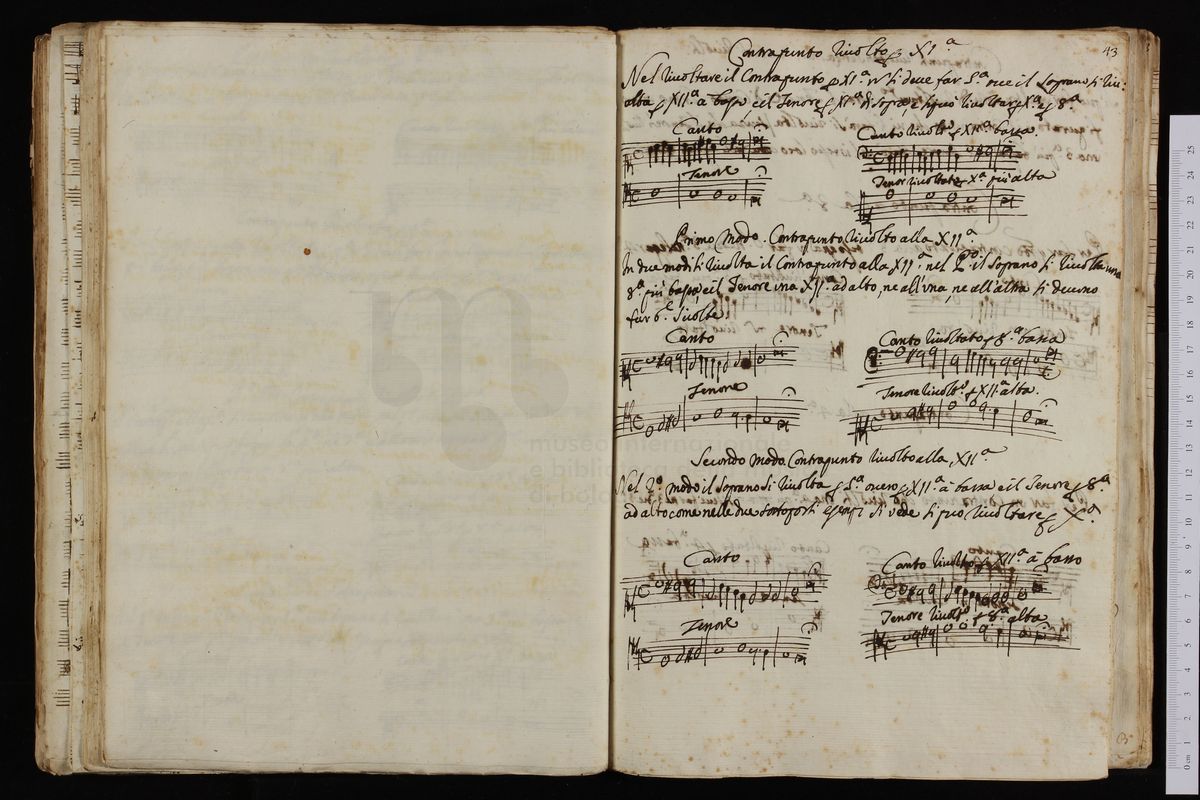 43
Contrapunto riuolto p XI.ª
Nel riuoltare il Contrapunto p XI.ª si deue far 5.ª oue il Soprano si riu:
alta p XII.ª à bassa, e il Tenore p XI.ª di sopra, e si può riuoltar p X.ª e p 8.ª
Canto
Canto riuolt.º p XII.ª bassa
Tenore
Tenor riuoltato p X.ª più alta
Primo Modo. Contrapunto riuolto alla XII.ª
In due modi si riuolta il Contrapunto alla XII.ª, nel P.º il Soprano si riuolta una
8.ª più bassa, e il Tenore una XII.ª ad alto, ne all'una, ne all'altra si deueno
far 6.e Sciolte
Canto
Canto riuoltato p 8.ª bassa
Tenore
Tenore riuolt.º p XII.ª alta.
Secondo Modo. Contrapunto riuolto alla XII.ª
Nel 2.º modo il Soprano si riuolta p 5.ª ouero p XII.ª à bassa e il Tenore p 8.ª
ad alto come nelle due sottoposti esempi si vede si può riuoltare p X.ª
Canto
Canto riuolto p XII.ª à basso
Tenore
Tenore riuolt.º p 8.ª alta
museo internazionale
e biblioteca
di bolo